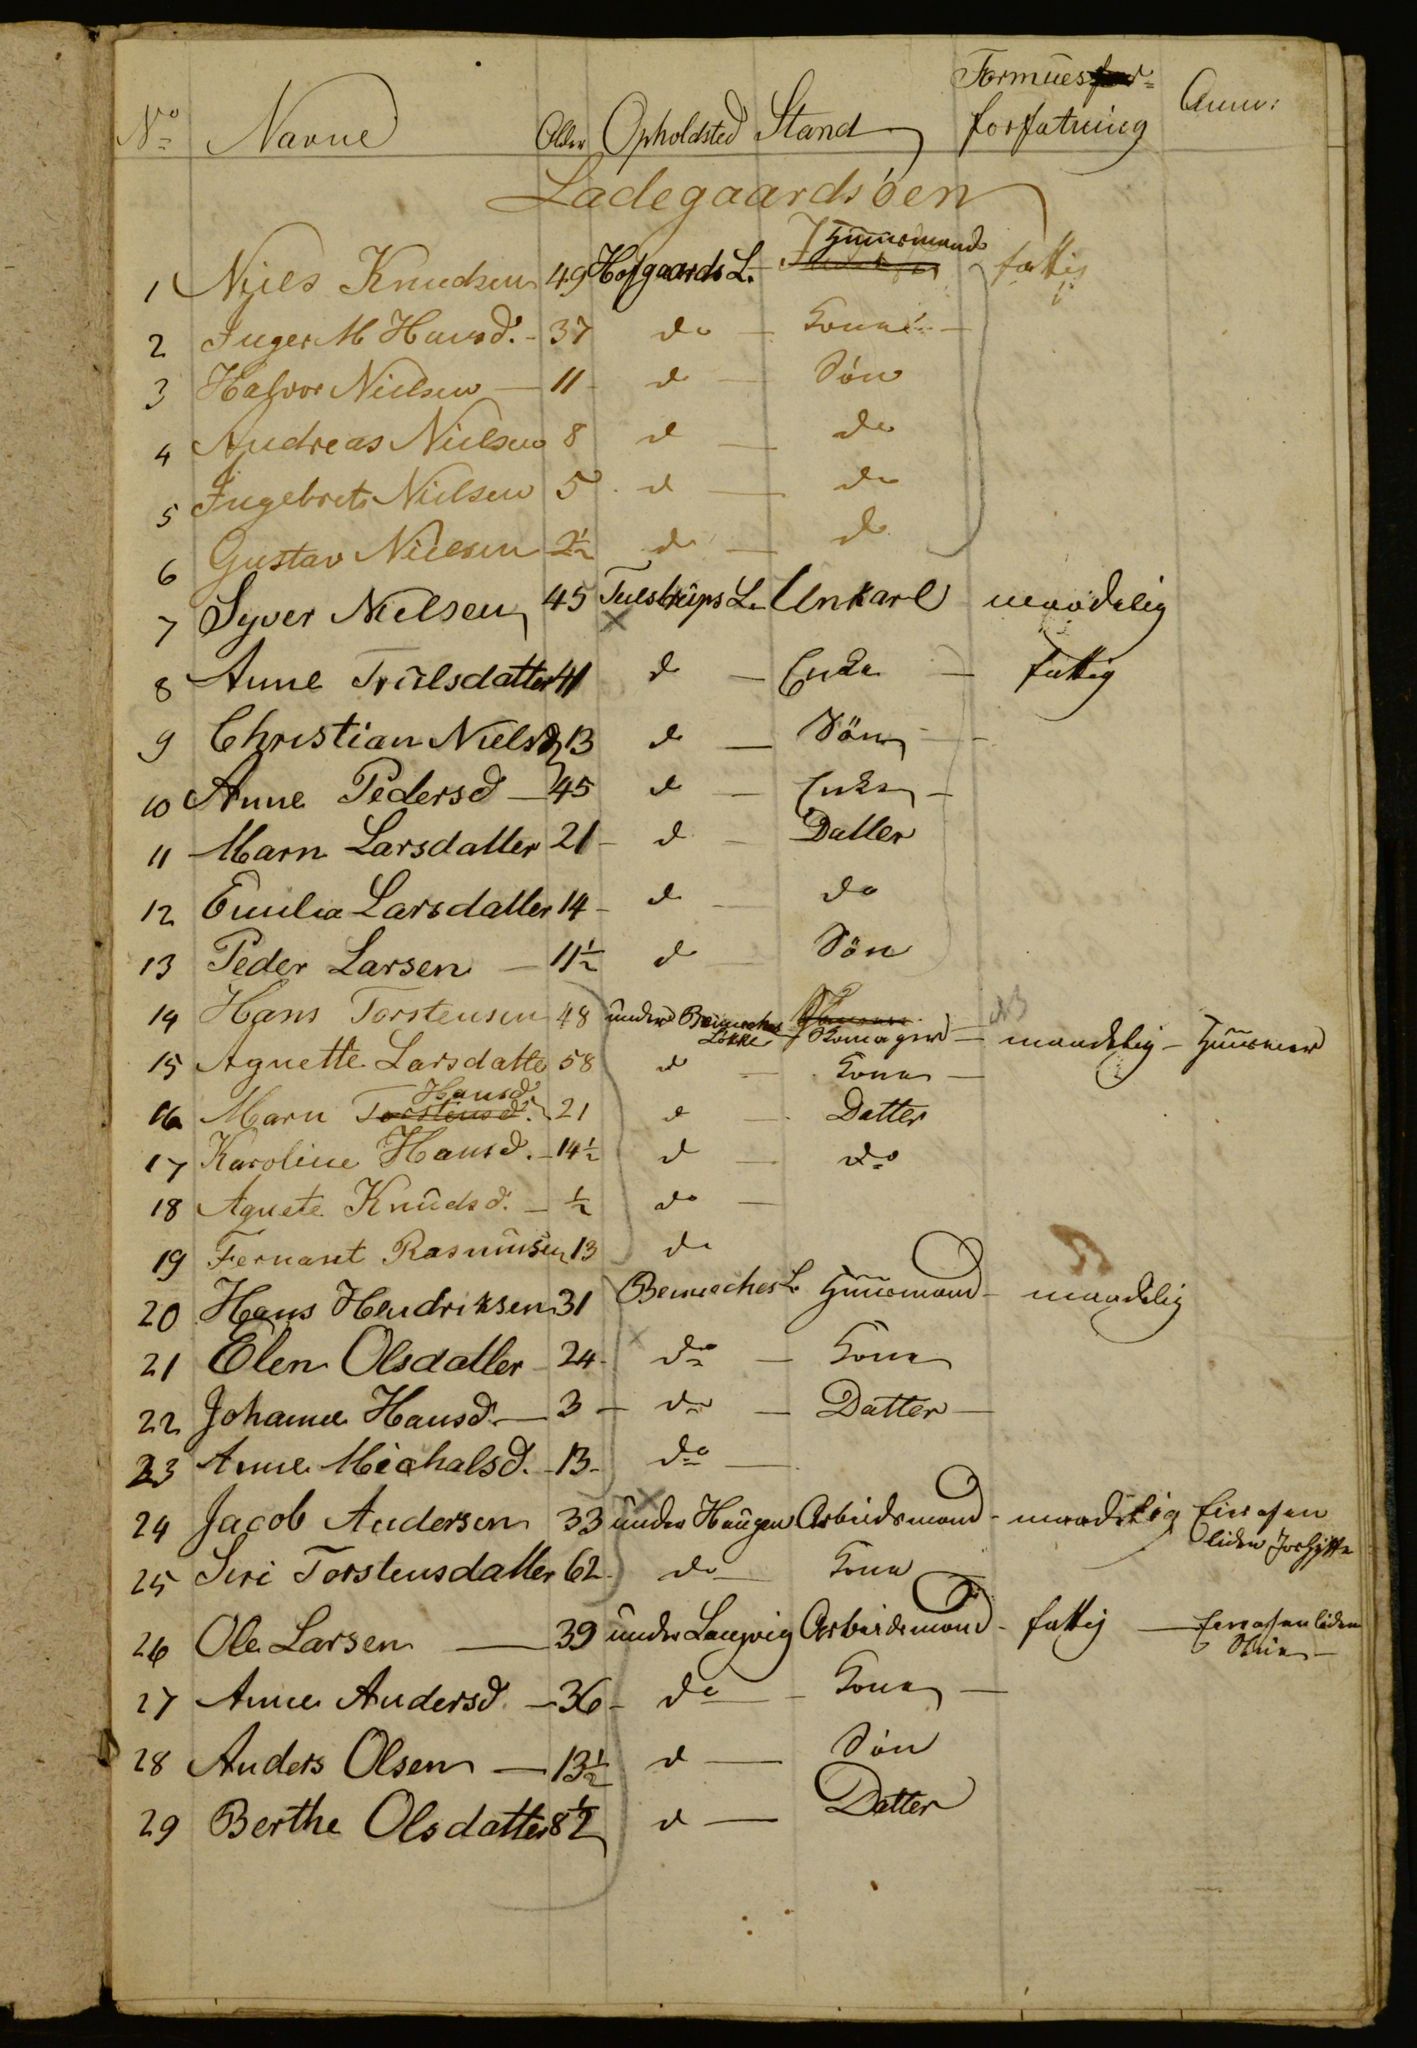 No Navne Alder Opholdsted Stand Formues forfatning Anm:
Ladegaardsöen
1 Niels Knudsen 49 Hofgaards L. Huusmand fattig
2 Inger M Hansd. - 37 do - Kone -
3 Halvor Nielsen - 11 - d - Søn
4 Andreas Nielsen 8 d - do
5 Ingebret Nielsen 5 d - do
6 Gustav Nielsen 2½ d - d
7 Syver Nielsen 45 Tulstrups L. Unkarl maadelig
8 Anne Trulsdatter 41 d - Enke - fattig
9 Christian Nielss 13 d - Sön -
10 Anne Pedersd - 45 d - Enke -
11 Marn Larsdatter 21 - d - Datter
12 Emilia Larsdatter 14 - d - do
13 Peder Larsen - 11½ d - Sön
14 Hans Torstensen 48 under Løkke Skomager - maadelig - Huusmand
15 Agnette Larsdatte 58 d - Kone -
16 Marn Torstensd. Hansd. 21 d - Datter
17 Karoline Hansd. - 14½ d - do
18 Agnete Knudsd. - ½ do -
19 Fernant Rasmusen 13 do
20 Hans Hendriksen 31 L. Huusmand - maadelig
21 Elen Olsdatter 24 - do - Kone
22 Johanne Hansd. - 3 - do - Datter -
23 Anne Michalsd. - 13 - do -
24 Jacob Andersen 33 under Haugen Arbeidsmand - maadelig liden
25 Siri Torstensdatter 62 - do - Kone -
26 Ole Larsen - 39 under Langvig Arbeidsmand - fattig - liden
27 Anne Andersd. - 36 - do - Kone -
28 Anders Olsen - 13½ d - Søn
29 Berthe Olsdatter 8½ d - Datter